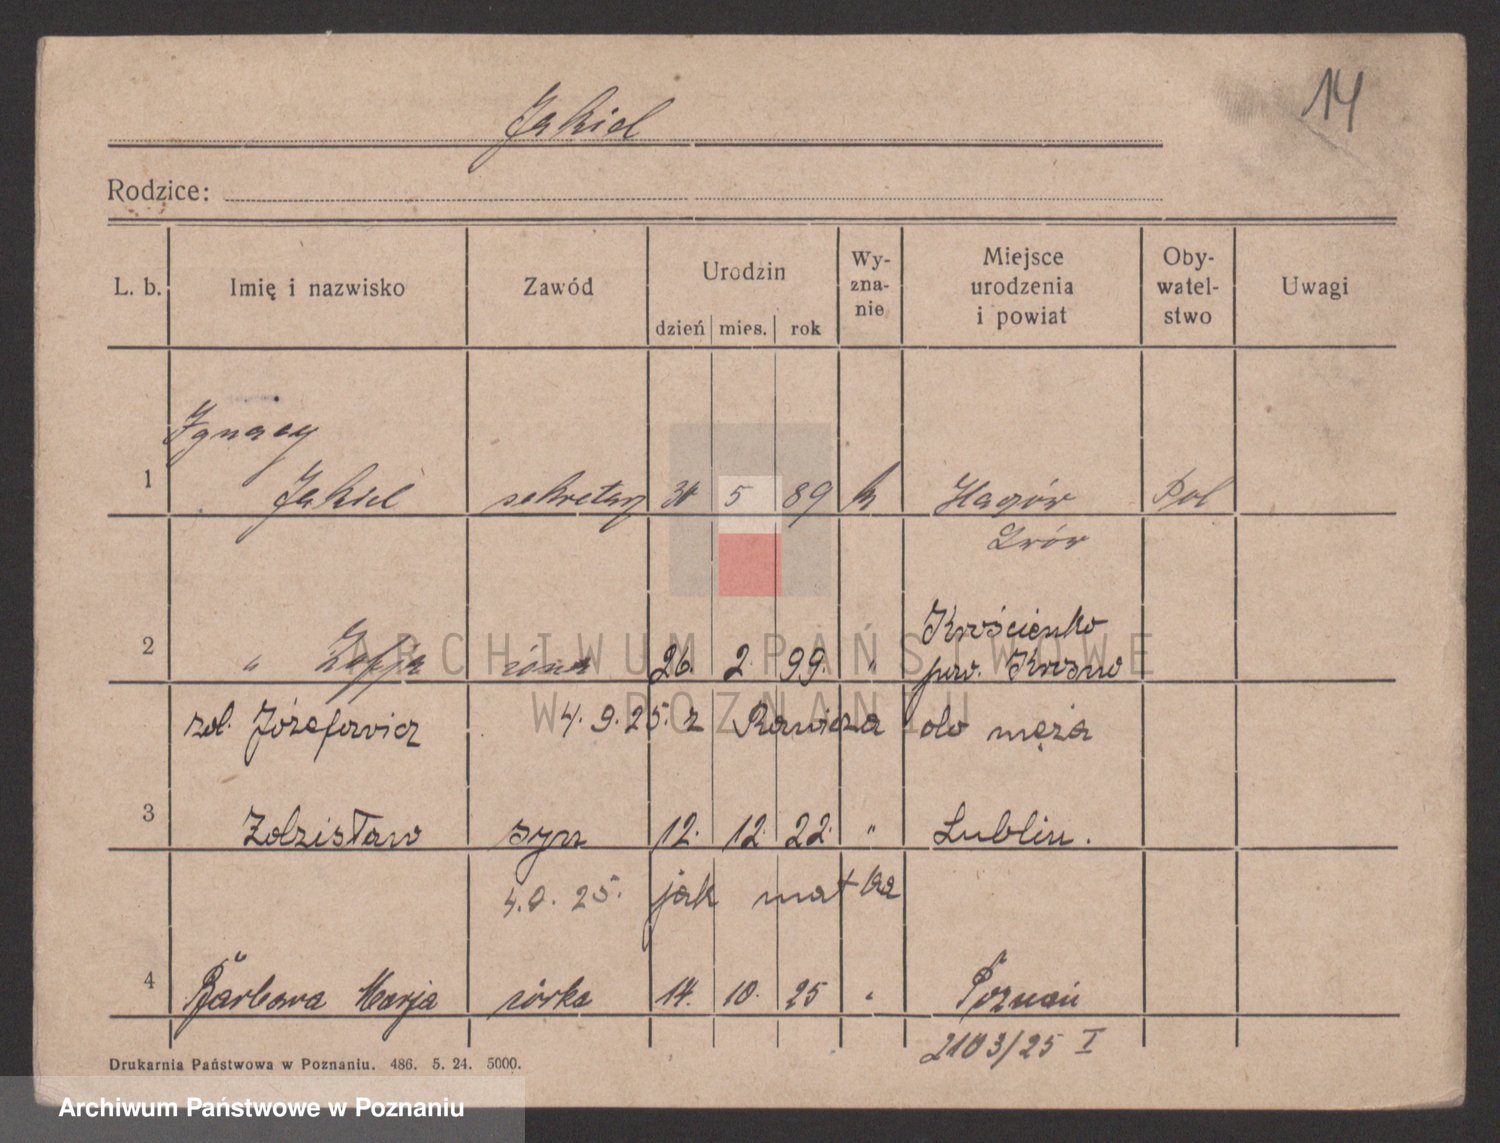 14
Jakiel
Rodzice:
L. b. Imię i nazwisko Zawód Urodzin dzień mies. rok Wy-zna-nie Miejsce urodzenia i powiat Oby-watel-stwo Uwagi
Ignacy
1 Jakiel sekretarz 5 89 k Pol
Krościenko
2 " Zofja żona 26. 2. 99. " pow. Krosno
Józefowicz 4. 9. 25. z Rawicza do męża
3 Zdzisław syn 12. 12. 22. " Lublin.
4. 9. 25. jak matka
4 Barbara Marja córka 14. 10. 25 " Poznań
2103/25 I
Drukarnia Państwowa w Poznaniu. 486. 5. 24. 5000.
ARCHIWUM PAŃSTWOWE
W POZNANIU
Archiwum Państwowe w Poznaniu